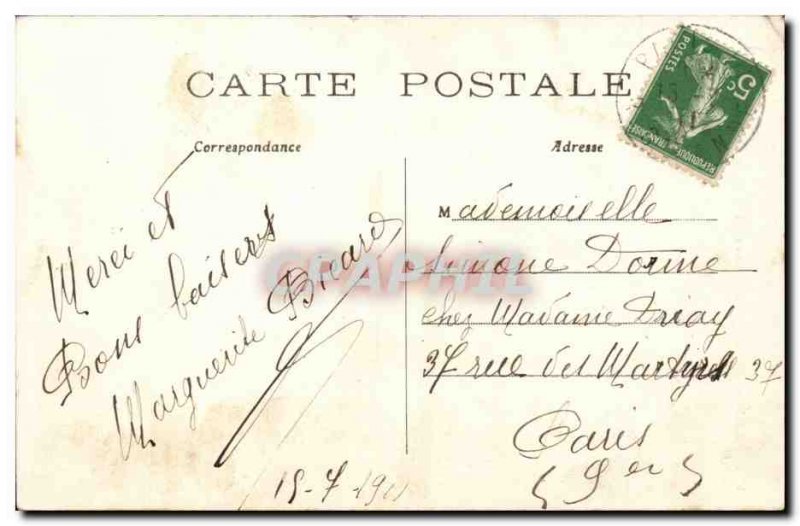 CARTE POSTALE
Correspondance
Merci et
Bons baisers
Marguerite Bicard
15-7-191
Adresse
Mademoiselle
Simone Dorme
chez Madame Driay
37 rue des Martyrs 37
Paris
(9er)
POSTES
5c
REPUBLIQUE FRANÇAISE
CPAPHIL